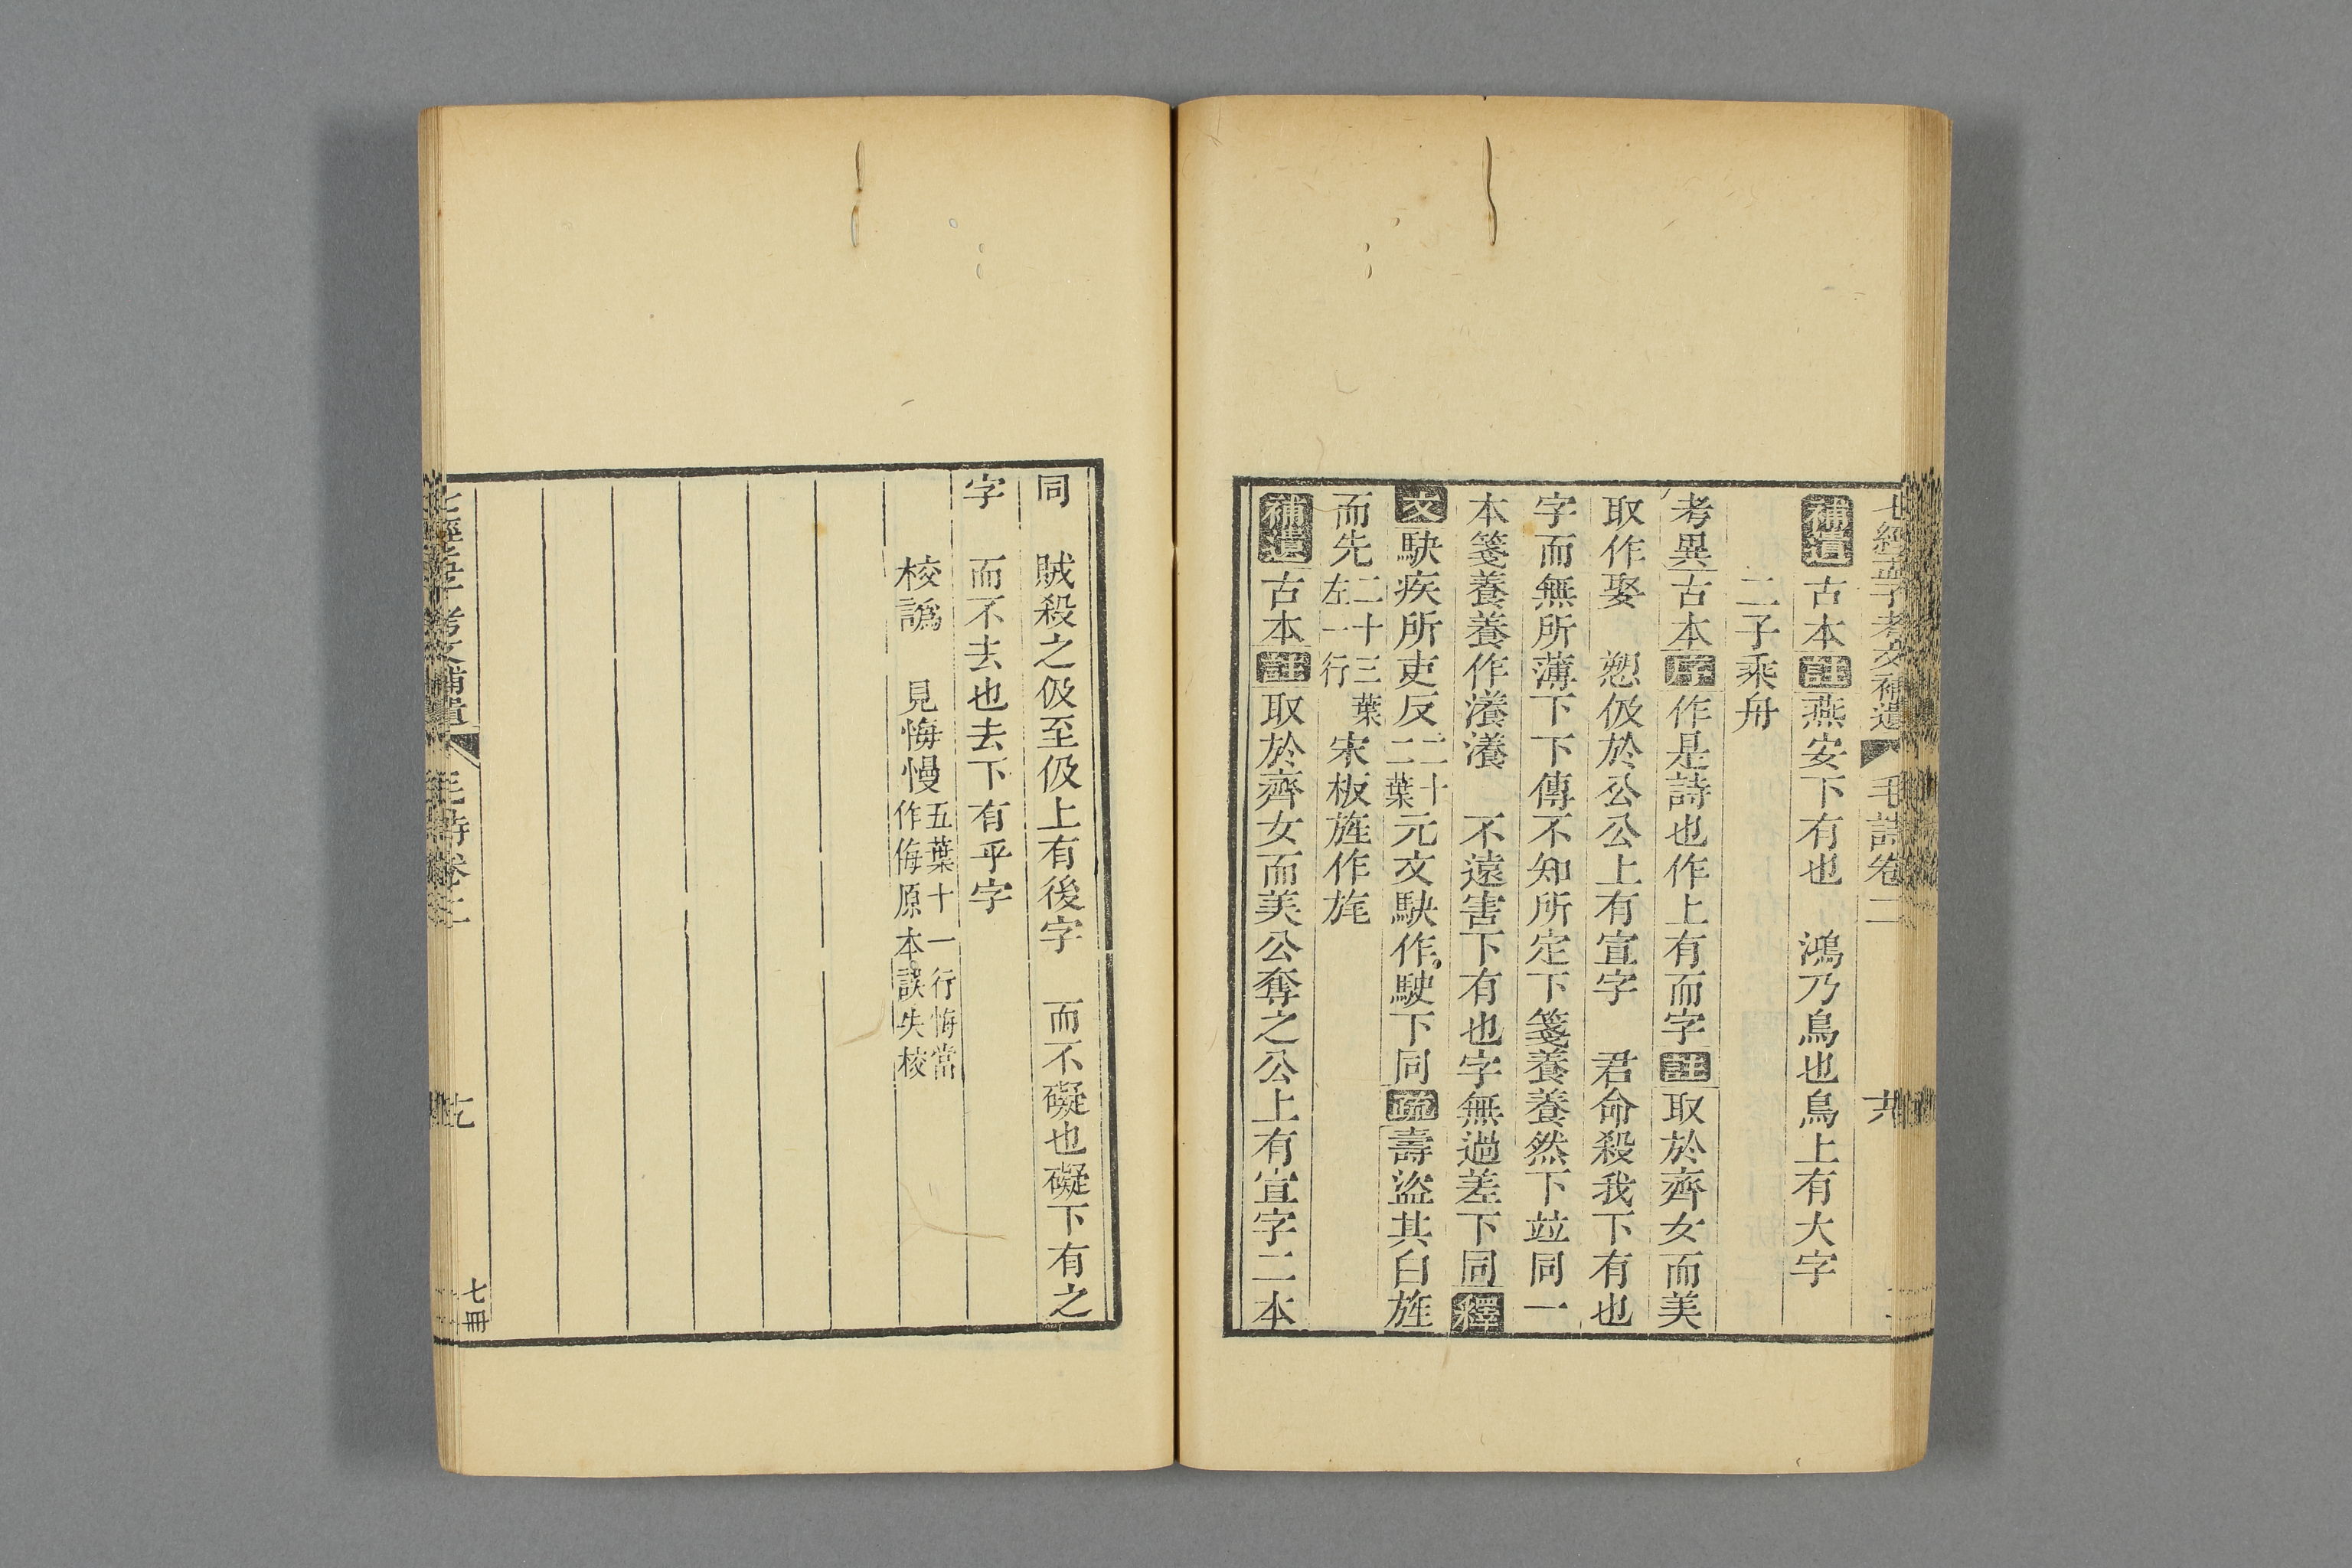 七經孟子考文補遺 毛詩卷二 六
補遺古本註燕安下有也 鴻乃鳥也鳥上有大字
二子乘舟
考異古本序作是詩也作上有而字註取於齊女而美
取作娶 愬伋於公公上有宣字 君命殺我下有也
字而無所薄下下傳不知所定下箋養養然下竝同一
本箋養養作瀁瀁 不遠害下有也字無過差下同釋
文駃疾所吏反二十二葉元文駃作駛下同疏壽盜其白旌
而先二十三葉左一行宋板旌作旄
補遺古本註取於齊女而美公奪之公上有宣字二本
同 賊殺之伋至伋上有後字 而不礙也礙下有之
字 而不去也去下有乎字
校譌 見悔慢五葉十一行悔當作侮原本誤失校
七經孟子考文補遺 毛詩卷二 七 七冊